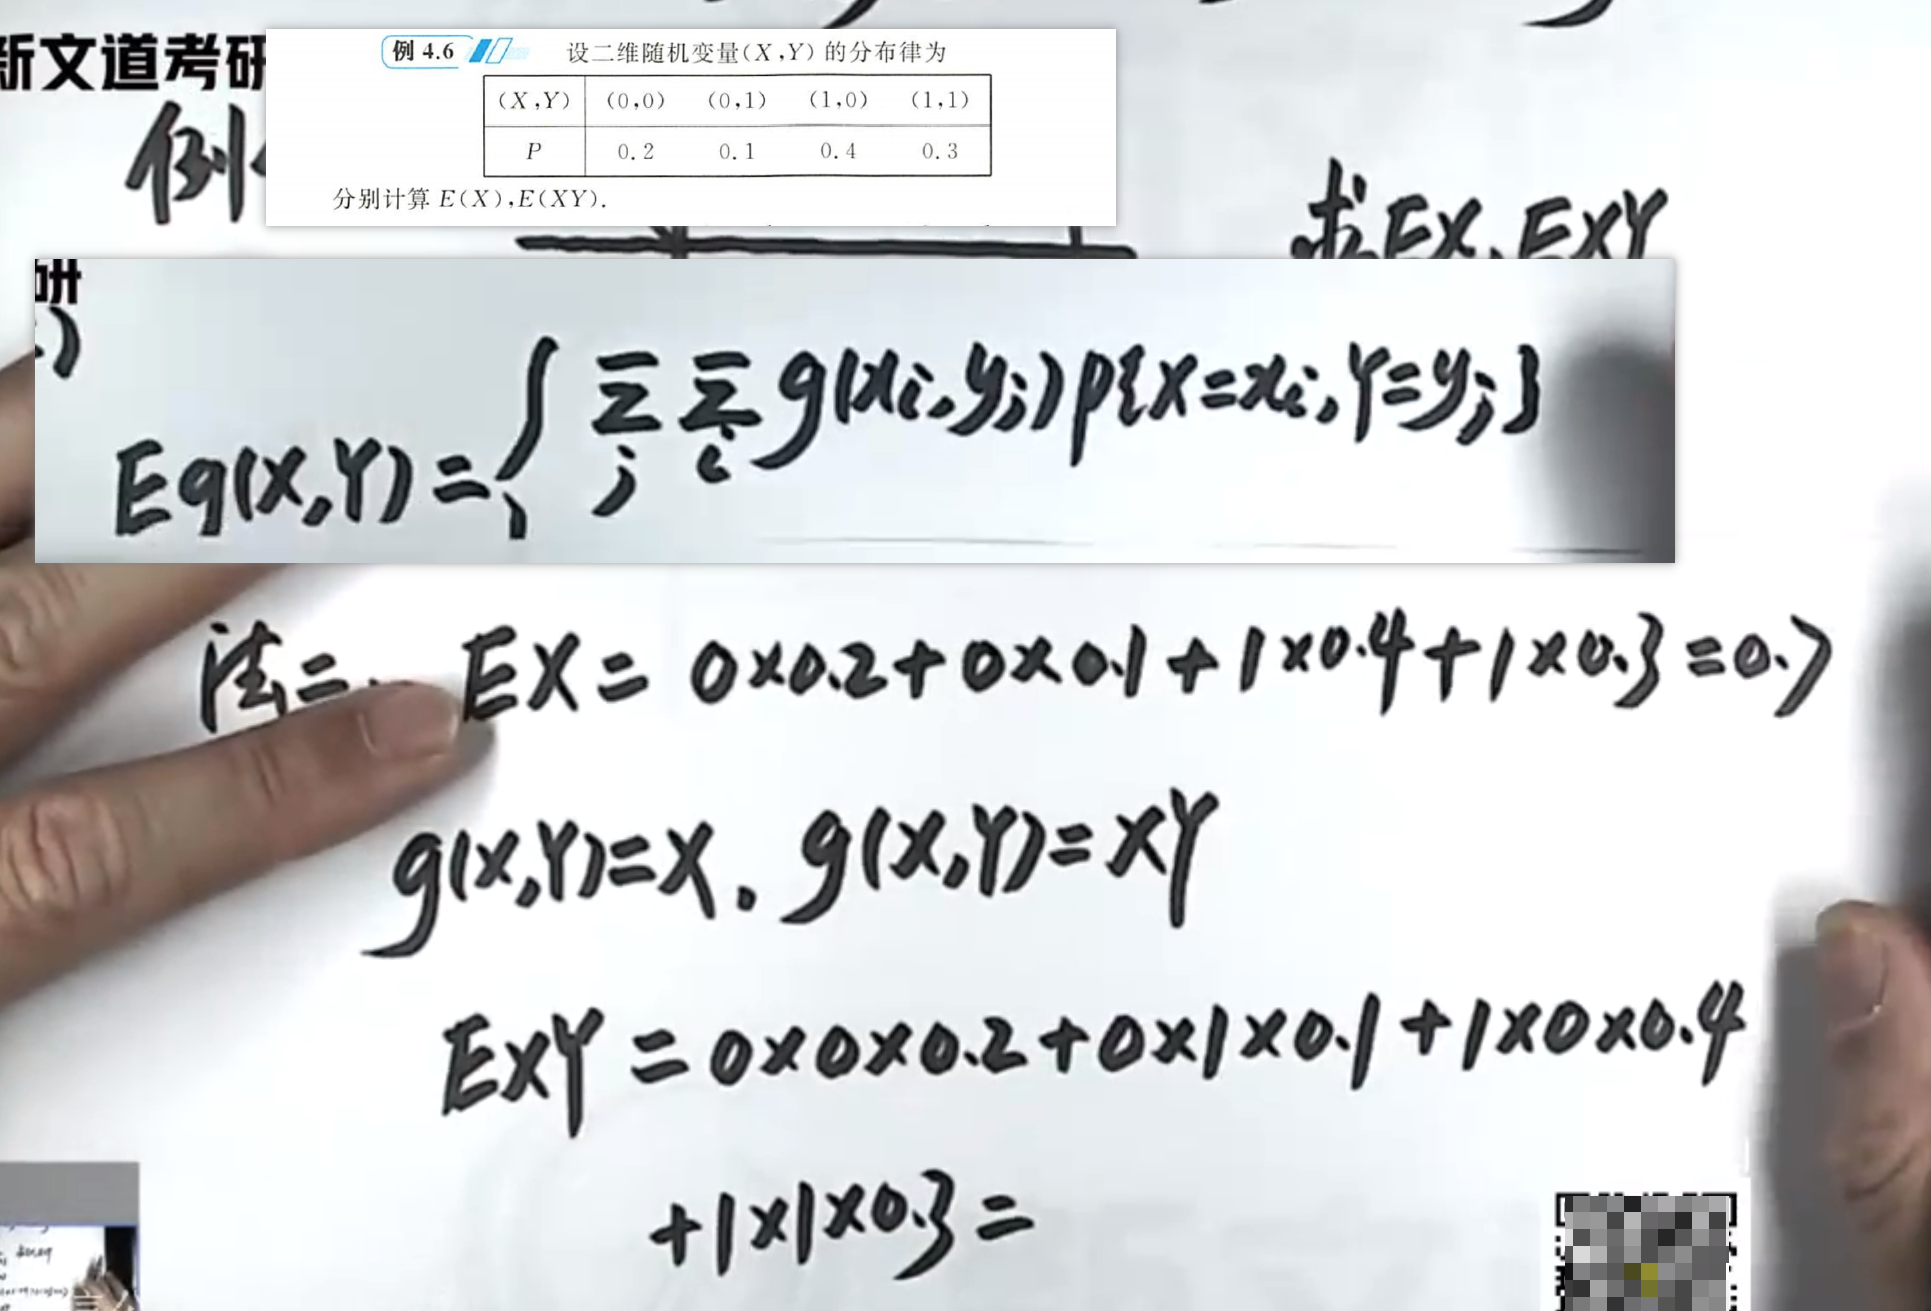 新文道考研
例 4.6 设二维随机变量(X,Y) 的分布律为
(X,Y) (0,0) (0,1) (1,0) (1,1)
P 0.2 0.1 0.4 0.3
分别计算 E(X),E(XY).
例
求EX,EXY
研
Eg(X,Y)={ ∑j ∑i g(xi,yj)p{X=xi,Y=yj}
法二. EX=0×0.2+0×0.1+1×0.4+1×0.3=0.7
g(X,Y)=X. g(X,Y)=XY
EXY=0×0×0.2+0×1×0.1+1×0×0.4
+1×1×0.3=